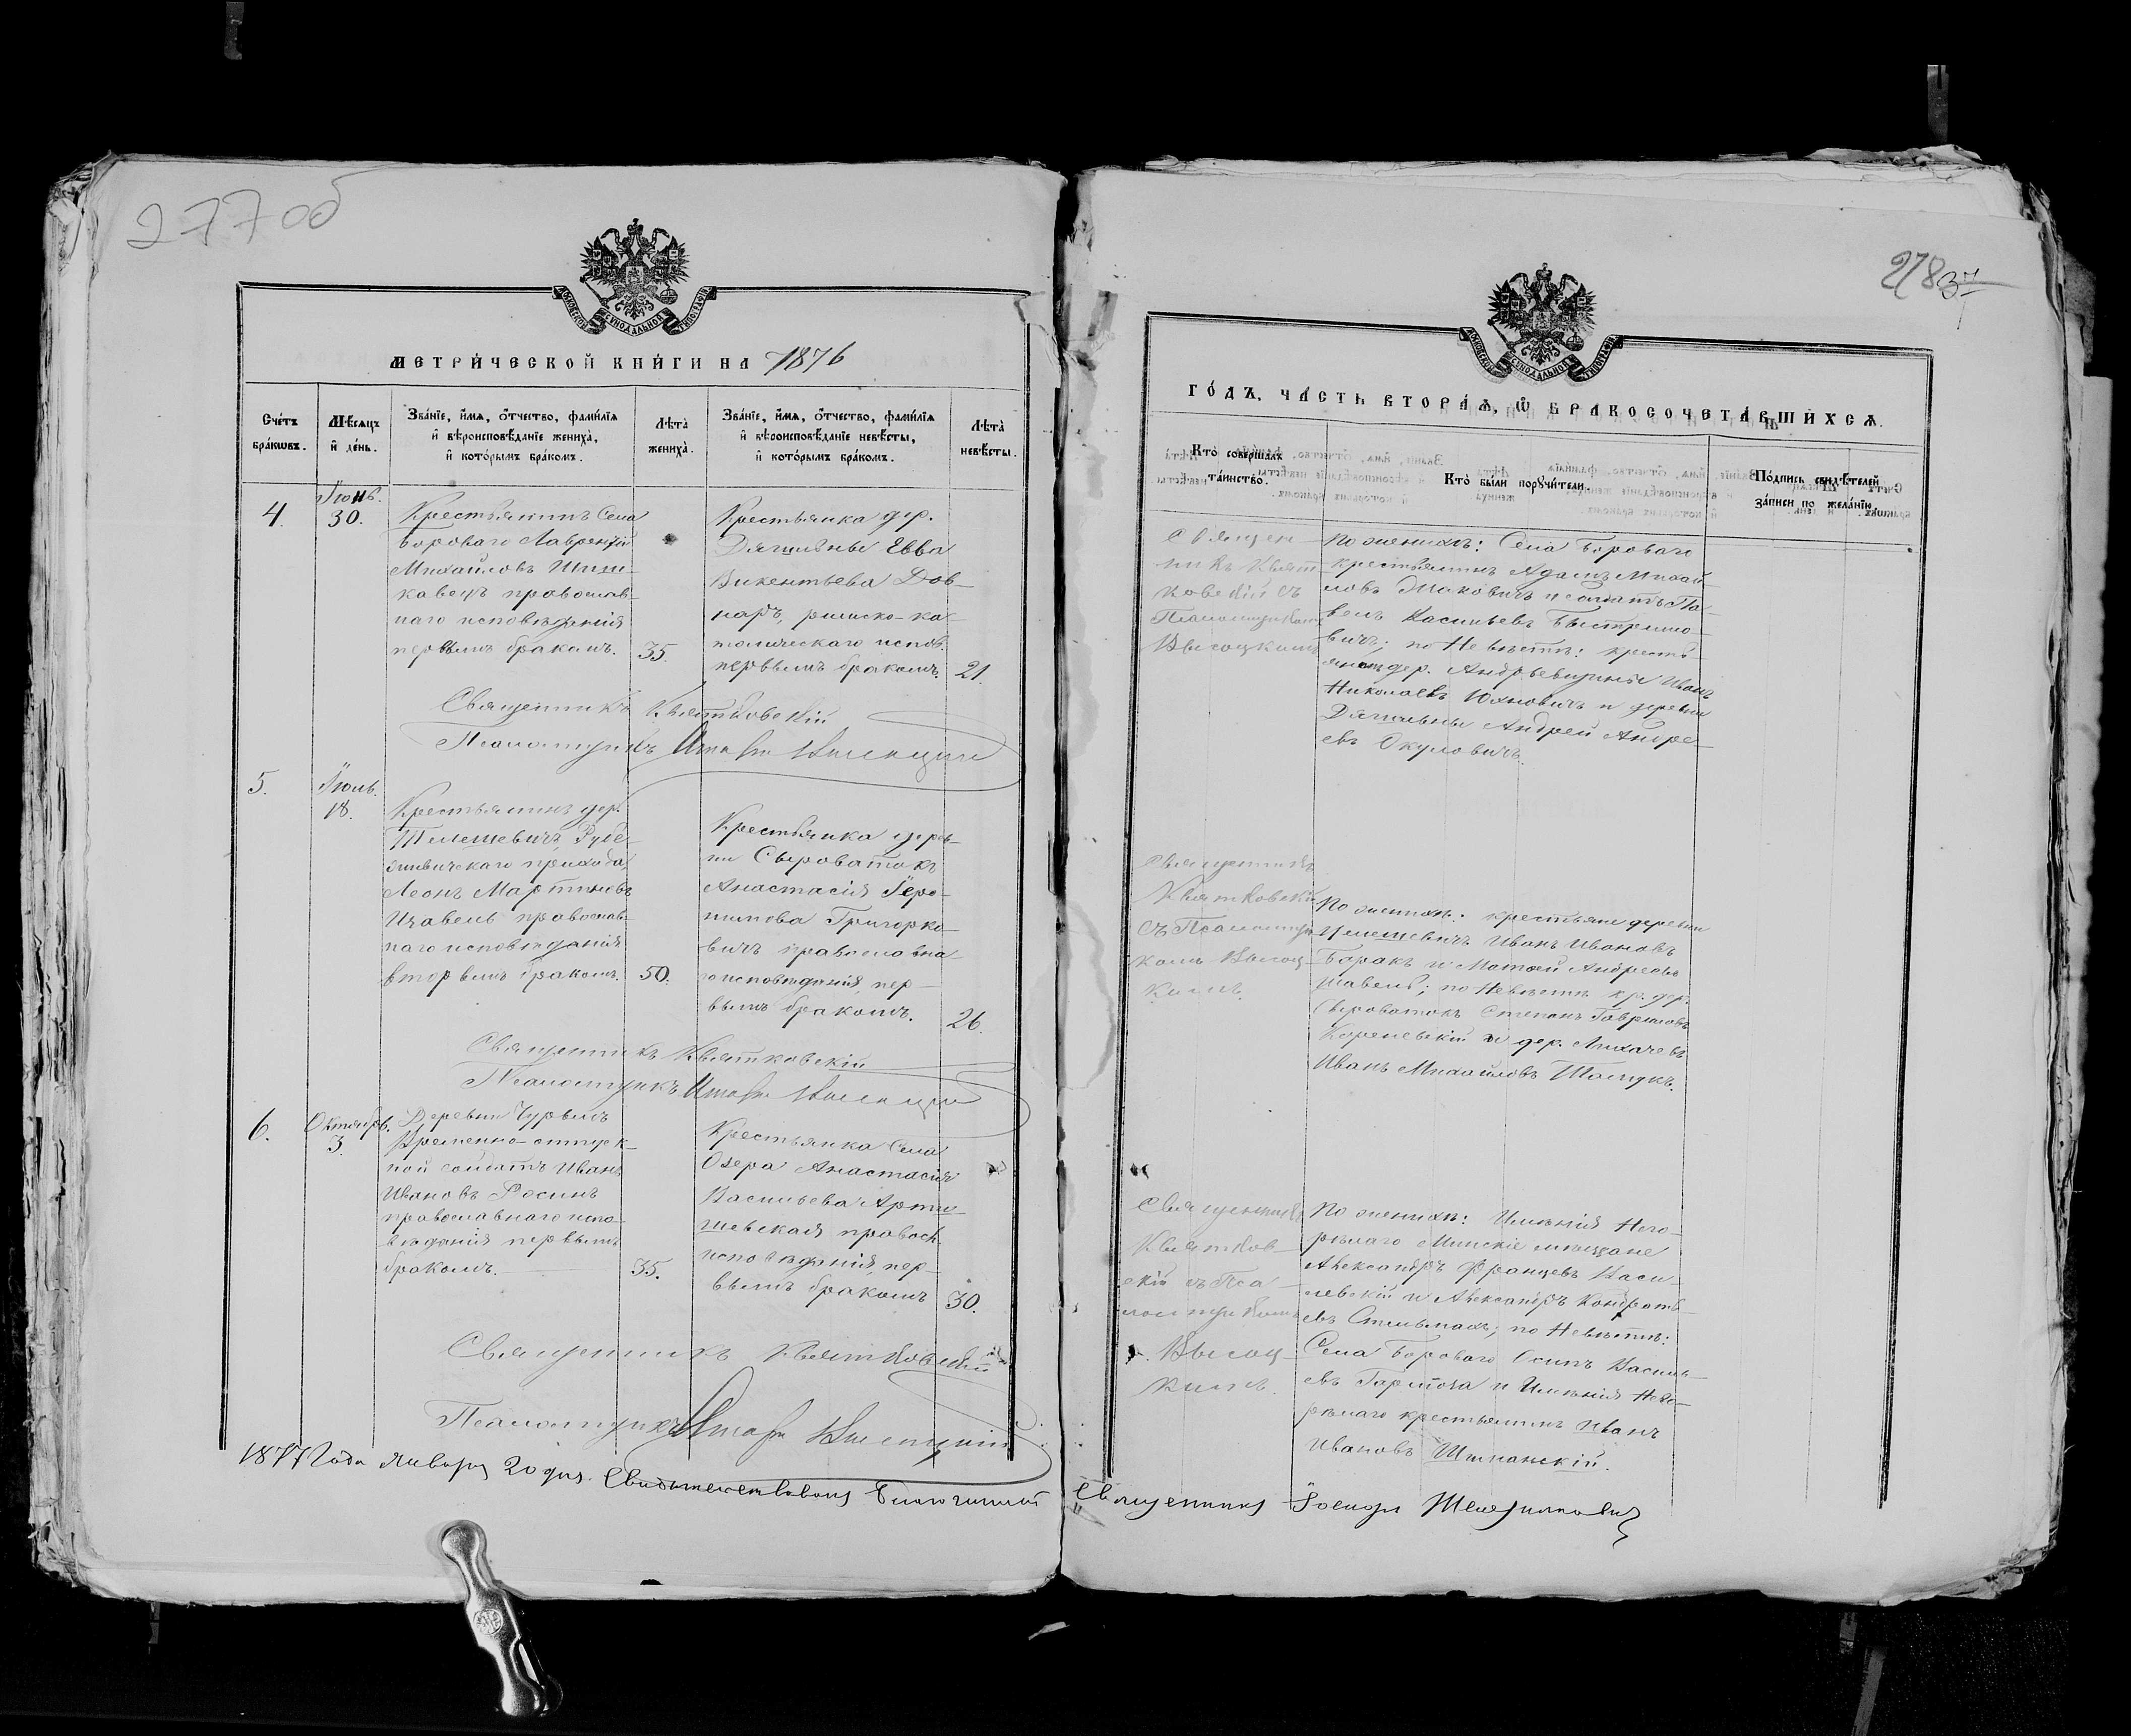 277об
МЕТРИ́ЧЕСКОЙ КНИ́ГИ НА 1876
Сче́тъ бра́кωвъ.
Мѣ́сѧцъ и҆ де́нь.
Зва́нїе, и҆́мѧ, ѻ҆́тчество, фамѝлїѧ и҆ вѣроисповѣ́данїе жениха̀, и҆ кото́рымъ бра́комъ.
Лѣ́та жениха̀.
Зва́нїе, и҆́мѧ, ѻ҆́тчество, фамѝлїѧ и҆ вѣроисповѣ́данїе невѣ́сты, и҆ кото́рымъ бра́комъ.
Лѣ́та невѣ́сты.
4.
Іюнь.
30.
Крестьянинъ Села
Бороваго Лаврентій
Михайловъ Шиш-
кавецъ православ-
наго исповѣданія
первымъ бракомъ.
35.
Крестьянка дер.
Дягильны Евва
Викентьева Дов-
наръ, римско-ка-
толическаго испов.
первымъ бракомъ.
21.
Священникъ Квятковскій
Псаломщикъ Высоцкій
5.
Іюль.
18.
Крестьянинъ дер.
Рубе-
жевичскаго прихода,
Леонъ Мартиновъ
православ-
наго исповѣданія
вторымъ бракомъ.
50.
Крестьянка дерев-
ни Сыроватокъ
Анастасія Іеро-
нимова Григорко-
вичъ православна-
го исповѣданія, пер-
вымъ бракомъ.
26.
Священникъ Квятковскій
Псаломщикъ Высоцкій
6.
Октябрь.
3.
Деревни
Временно-отпуск-
ной солдатъ Иванъ
Ивановъ Росинъ
православнаго испо-
вѣданія первымъ
бракомъ.
35.
Крестьянка Села
Озера Анастасія
Васильева Арти-
шевская правосл.
исповѣданія, пер-
вымъ бракомъ
30.
Священникъ Квятковскій
Псаломщикъ Высоцкій
1877 Года Января 20 дня. Свидѣтельствовалъ Благочинный
278
37
ГО́ДЪ, ЧА́СТЬ ВТОРА́Ѧ, Ѽ БРАКОСОЧЕТА́ВШИХСѦ.
Кто̀ соверша́лъ та́инство.
Кто̀ бы́ли порꙋчи́тели.
По́дпись свидѣ́телей за́писи по жела́нїю.
Священ-
никъ Квят-
ковскій съ
Псаломщикомъ
Высоцкимъ
По женихѣ: Села Бороваго
крестьянинъ Адамъ Михай-
ловъ и солдатъ Па-
велъ Васильевъ Быстримо-
вичъ; по Невѣстѣ: кресть-
янинъ дер. Андрѣевщины Иванъ
Николаевъ Юхновичъ и деревни
Дягильны Андрей Андре-
евъ Окуловичъ.
Священникъ
Квятковскій
съ Псаломщи-
комъ Высоц-
кимъ.
По женихѣ: крестьяне деревни
Иванъ Ивановъ
Баракъ и Матѳей Андреевъ
по Невѣстѣ кр. дер.
Сыроватокъ Степанъ Гавриловъ
Кореневскій и дер. Лихачевъ
Иванъ Михайловъ
Священникъ
Квятков-
скій съ Пса-
ломщикомъ
Высоц-
кимъ.
По женихѣ: Имѣнія Него-
рѣлаго Минскіе мѣщане
Александръ Францевъ Васи-
левскій и Александръ Кондрать-
евъ Стельмахъ; по Невѣстѣ:
Села Бороваго Осипъ Василь-
евъ и Имѣнія Него-
рѣлаго крестьянинъ Иванъ
Ивановъ
Священникъ Іосифъ